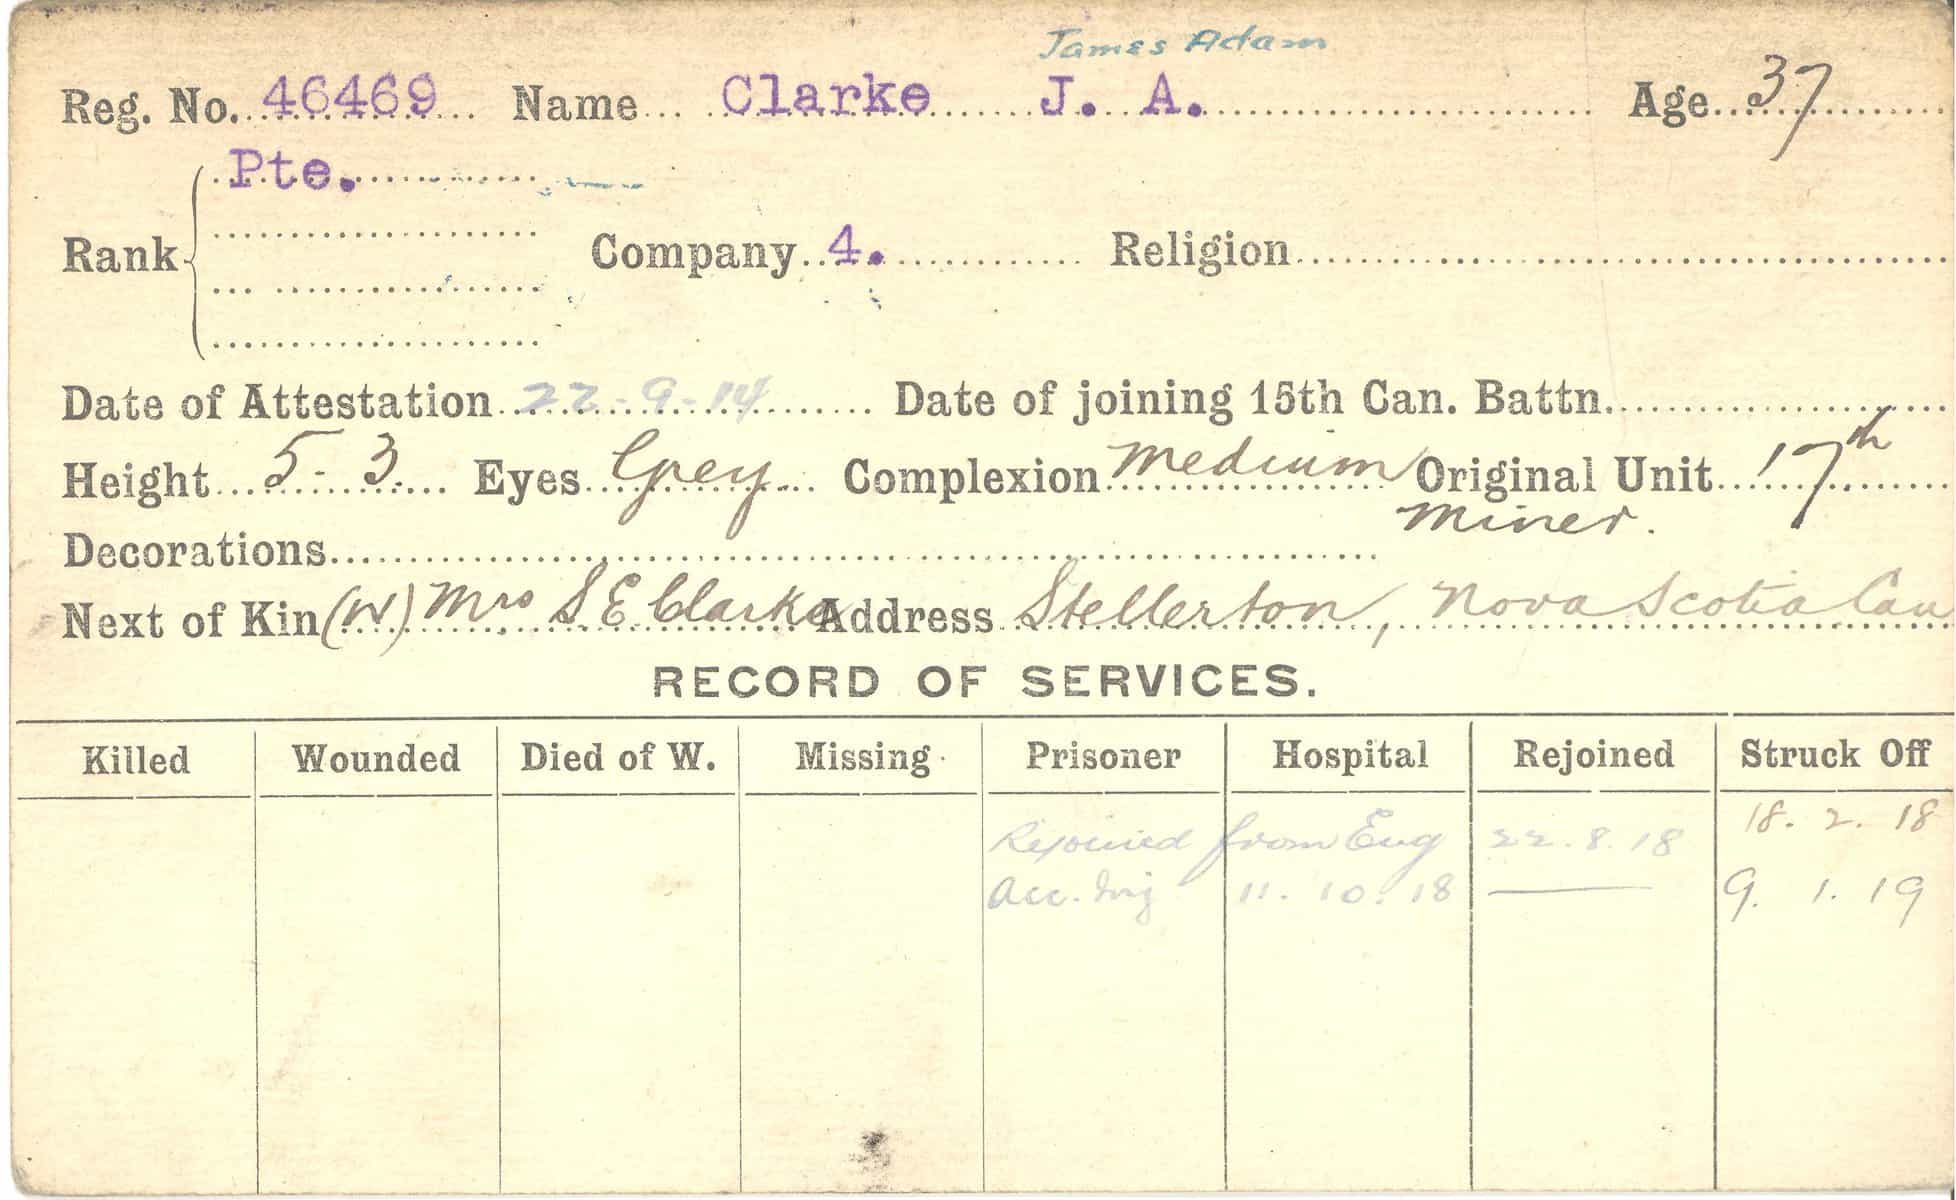 James Adam
Reg. No. 46469 Name Clarke J. A. Age 37
Pte.
Rank Company 4. Religion
Date of Attestation 22-9-14 Date of joining 15th Can. Battn.
Height 5-3. Eyes Grey Complexion Medium Original Unit 17th
Miner.
Decorations
Next of Kin (W) Mrs S E Clarke Address Stellerton, Nova Scotia Can
RECORD OF SERVICES.
Killed Wounded Died of W. Missing Prisoner Hospital Rejoined Struck Off
18. 2. 18
Rejoined from Eng 22.8.18
Acc. Inj 11. 10. 18 9. 1. 19